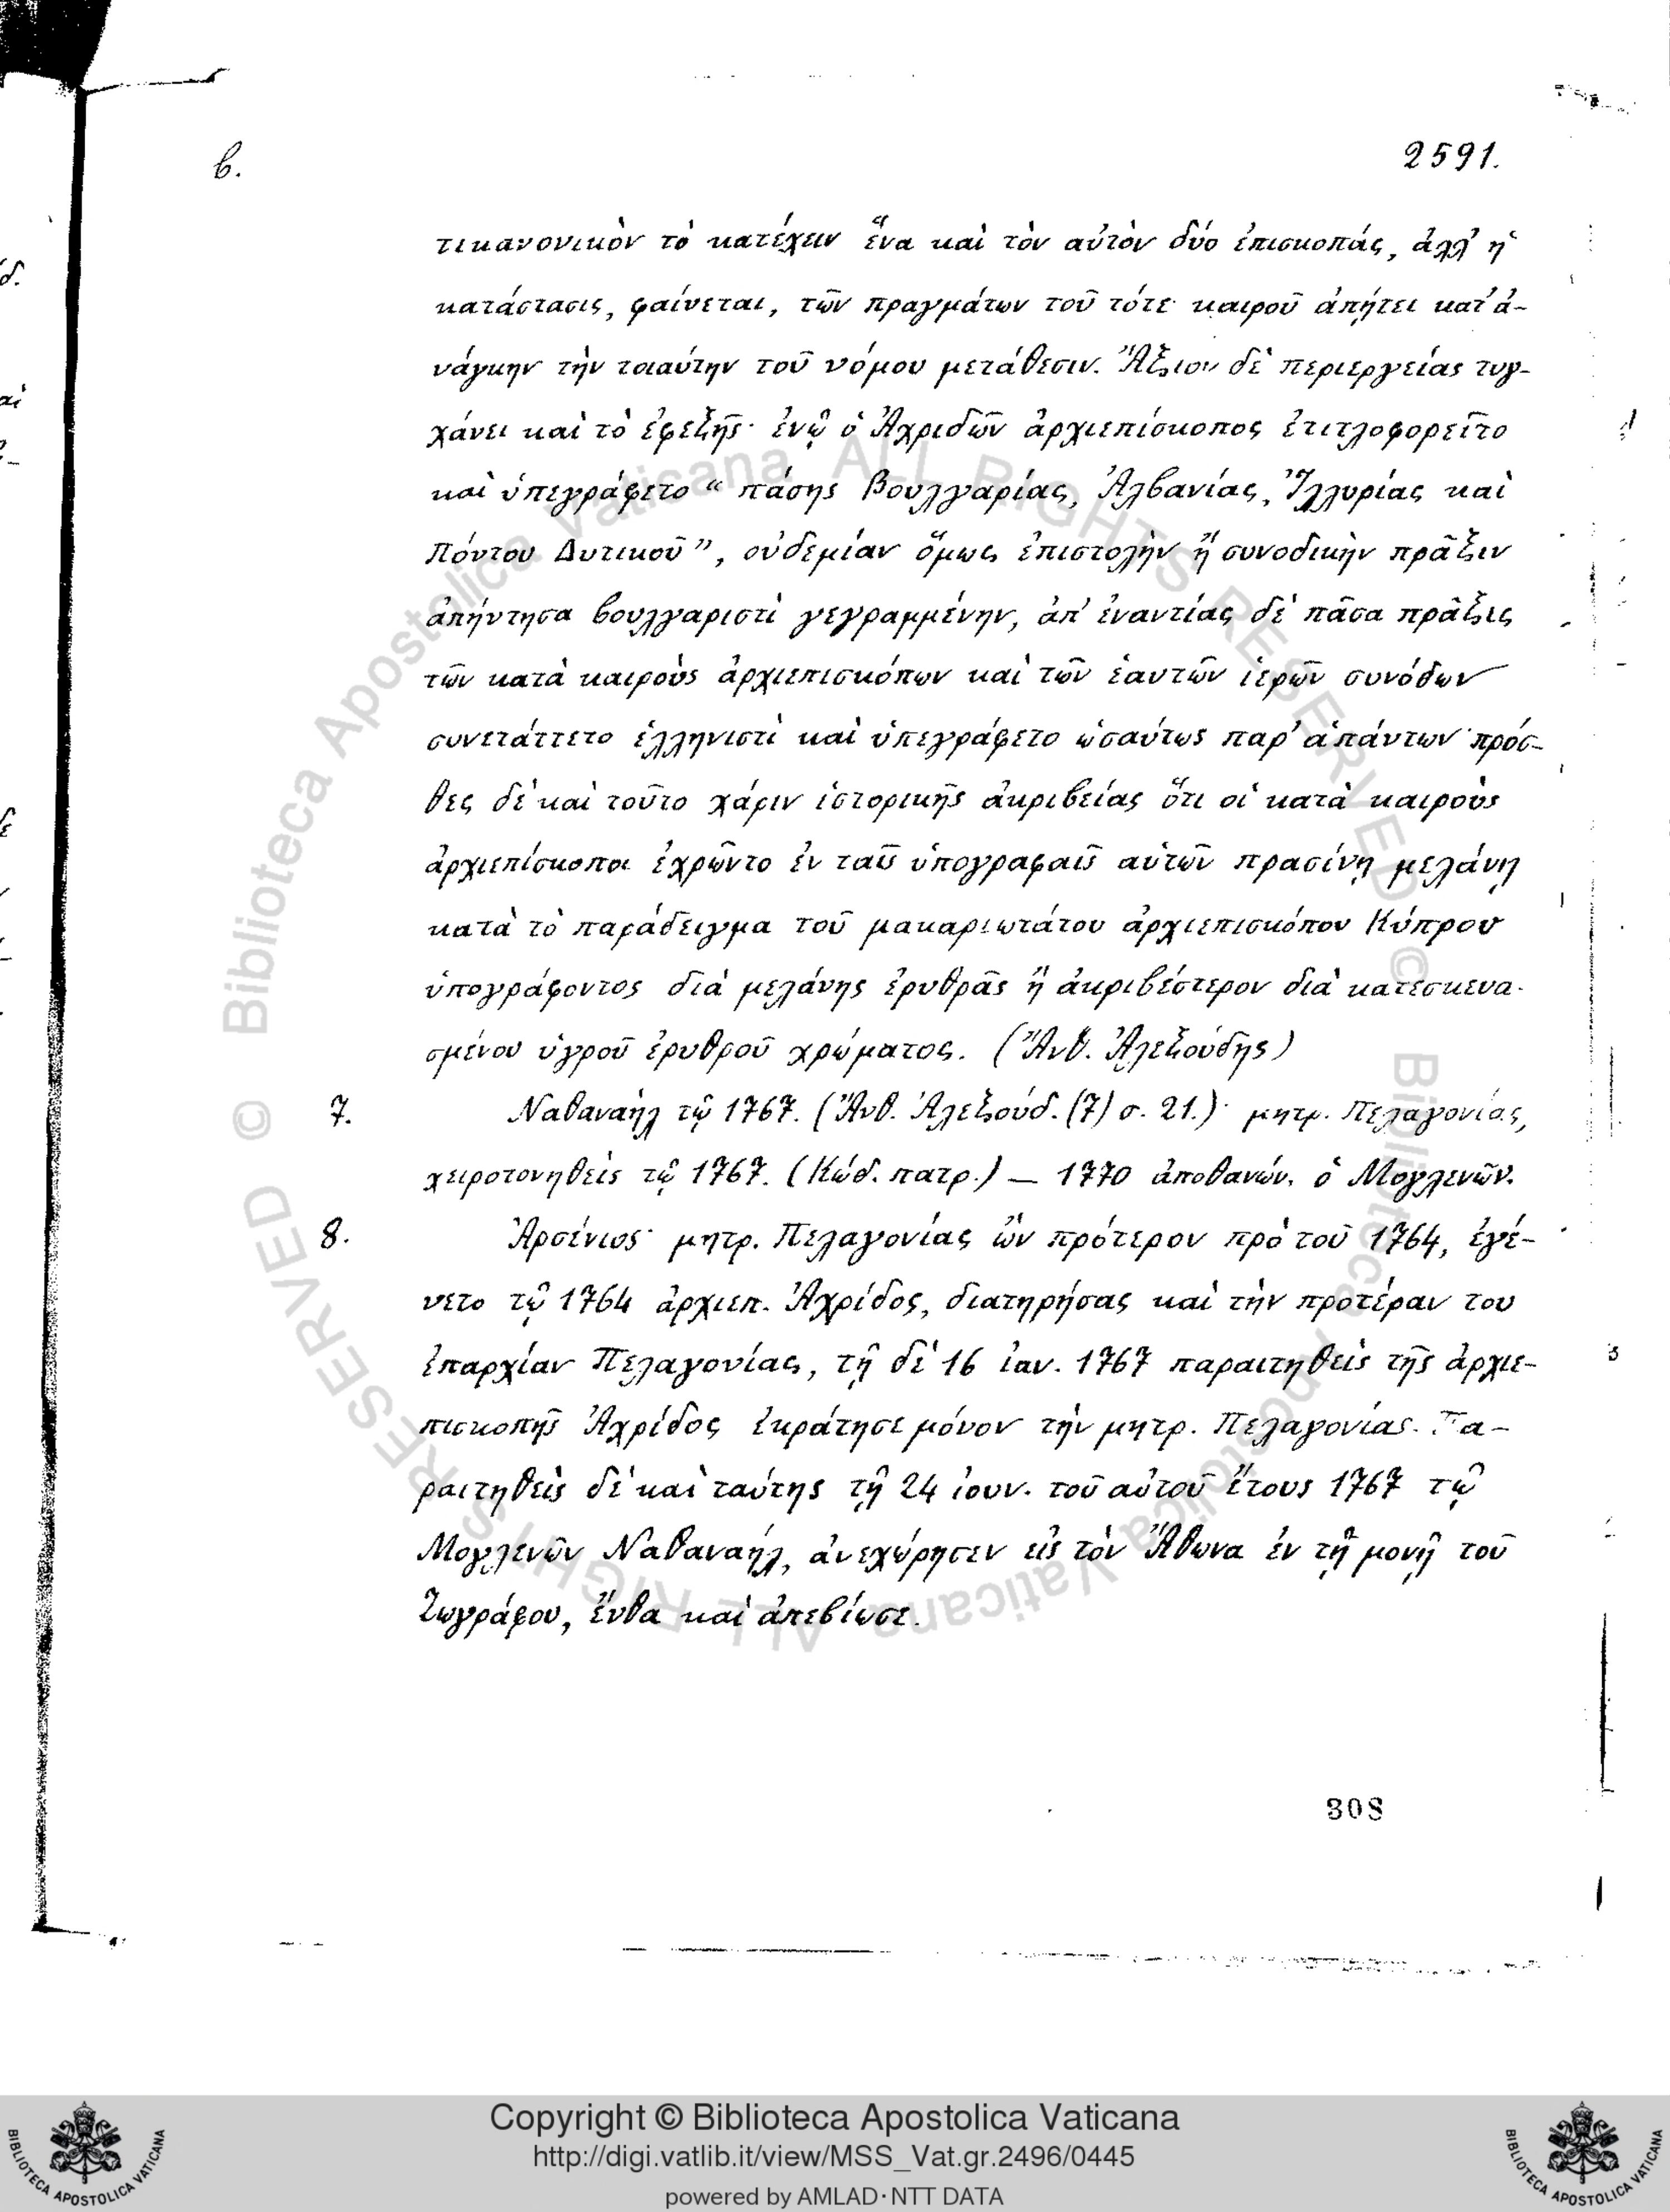 β. 2591.
τικανονικὸν τὸ κατέχειν ἕνα καὶ τὸν αὐτὸν δύο ἐπισκοπάς, ἀλλ' ἡ
κατάστασις, φαίνεται, τῶν πραγμάτων τοῦ τότε καιροῦ ἀπῄτει κατ' ἀ-
νάγκην τὴν τοιαύτην τοῦ νόμου μετάθεσιν. Ἄξιον δὲ περιεργείας τυγ-
χάνει καὶ τὸ ἐφεξῆς· ἐνῷ ὁ Ἀχριδῶν ἀρχιεπίσκοπος ἐτιτλοφορεῖτο
καὶ ὑπεγράφετο “ πάσης Βουλγαρίας, Ἀλβανίας, Ἰλλυρίας καὶ
Πόντου Δυτικοῦ”, οὐδεμίαν ὅμως ἐπιστολὴν ἢ συνοδικὴν πρᾶξιν
ἀπήντησα βουλγαριστὶ γεγραμμένην, ἀπ' ἐναντίας δὲ πᾶσα πρᾶξις
τῶν κατὰ καιροὺς ἀρχιεπισκόπων καὶ τῶν ἑαυτῶν ἱερῶν συνόδων
συνετάττετο ἑλληνιστὶ καὶ ὑπεγράφετο ὡσαύτως παρ' ἁπάντων· πρόσ-
θες δὲ καὶ τοῦτο χάριν ἱστορικῆς ἀκριβείας ὅτι οἱ κατὰ καιροὺς
ἀρχιεπίσκοποι ἐχρῶντο ἐν ταῖς ὑπογραφαῖς αὑτῶν πρασίνῃ μελάνῃ
κατὰ τὸ παράδειγμα τοῦ μακαριωτάτου ἀρχιεπισκόπου Κύπρου
ὑπογράφοντος διὰ μελάνης ἐρυθρᾶς ἢ ἀκριβέστερον διὰ κατεσκευα-
σμένου ὑγροῦ ἐρυθροῦ χρώματος. (Ἄνθ. Ἀλεξούδης)
7. Ναθαναὴλ τῷ 1767. (Ἄνθ. Ἀλεξούδ. (7) σ. 21.)· μητρ. Πελαγονίας,
χειροτονηθεὶς τῷ 1767. (Κώδ. πατρ.) — 1770 ἀποθανών. ὁ Μογλενῶν.
8. Ἀρσένιος· μητρ. Πελαγονίας ὢν πρότερον πρὸ τοῦ 1764, ἐγέ-
νετο τῷ 1764 ἀρχιεπ. Ἀχρίδος, διατηρήσας καὶ τὴν προτέραν του
ἐπαρχίαν Πελαγονίας, τῇ δὲ 16 ἰαν. 1767 παραιτηθεὶς τῆς ἀρχιε-
πισκοπῆς Ἀχρίδος ἐκράτησε μόνον τὴν μητρ. Πελαγονίας. Πα-
ραιτηθεὶς δὲ καὶ ταύτης τῇ 24 ἰουν. τοῦ αὐτοῦ ἔτους 1767 τῷ
Μογλενῶν Ναθαναὴλ, ἀνεχώρησεν εἰς τὸν Ἄθωνα ἐν τῇ μονῇ τοῦ
Ζωγράφου, ἔνθα καὶ ἀπεβίωσε.
308
© Biblioteca Apostolica Vaticana ALL RIGHTS RESERVED © Biblioteca Apostolica Vaticana ALL RIGHTS RESERVED
Copyright © Biblioteca Apostolica Vaticana
http://digi.vatlib.it/view/MSS_Vat.gr.2496/0445
powered by AMLAD·NTT DATA
BIBLIOTECA APOSTOLICA VATICANA
BIBLIOTECA APOSTOLICA VATICANA